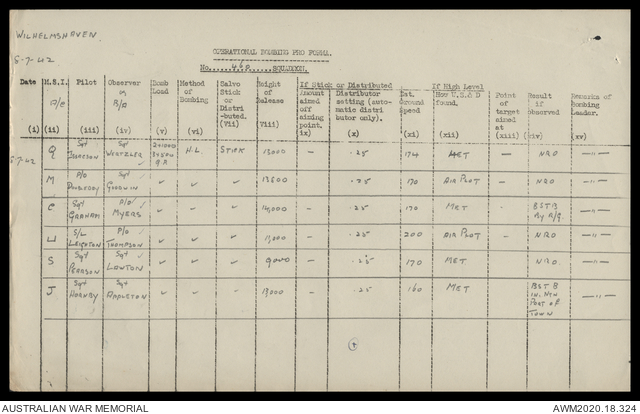 WILHELMSHAVEN.
8-7-42
OPERATIONAL BOMBING PRO FORMA.
No. 460 SQUADRON.
Date M.S.I. Pilot Observer Bomb Method Salvo Height If Stick or Distributed Est. If High Level Point Result Remarks of
A/C in Load of Stick of Amount Distributor Ground How U.S.& D of if Bombing
B/A Bombing or Release aimed setting (auto- Speed found. target observed Leader.
Distri off matic distri aimed
-buted. aiming butor only). at
point.
(i) (ii) (iii) (iv) (v) (vi) (Vii) Viii) ix) (x) (xi) (xii) (xiii) (xiv) (xv)
8.7.42 Q Sgt JAMESON Sgt H.L. STICK 13000 - .25 174 MET - NRO —"—
M P/O Sgt GOODWIN ✓ ✓ ✓ - .25 170 AIR PLOT - NRO —"—
C Sgt GRAHAM P/O MYERS ✓ ✓ ✓ 14,000 - .25 170 MET BST B —"—
U S/L LEIGHTON P/O THOMPSON ✓ ✓ ✓ 11,000 - .25 200 AIR PLOT - NRO —"—
S Sgt PEARSON Sgt LAWTON ✓ ✓ ✓ 9000 - .25 170 MET - NRO —"—
J Sgt HORNBY Sgt APPLETON ✓ ✓ ✓ 13000 - .25 160 MET - BST B IN. NTH PART OF TOWN —"—
AUSTRALIAN WAR MEMORIAL
AWM2020.18.324